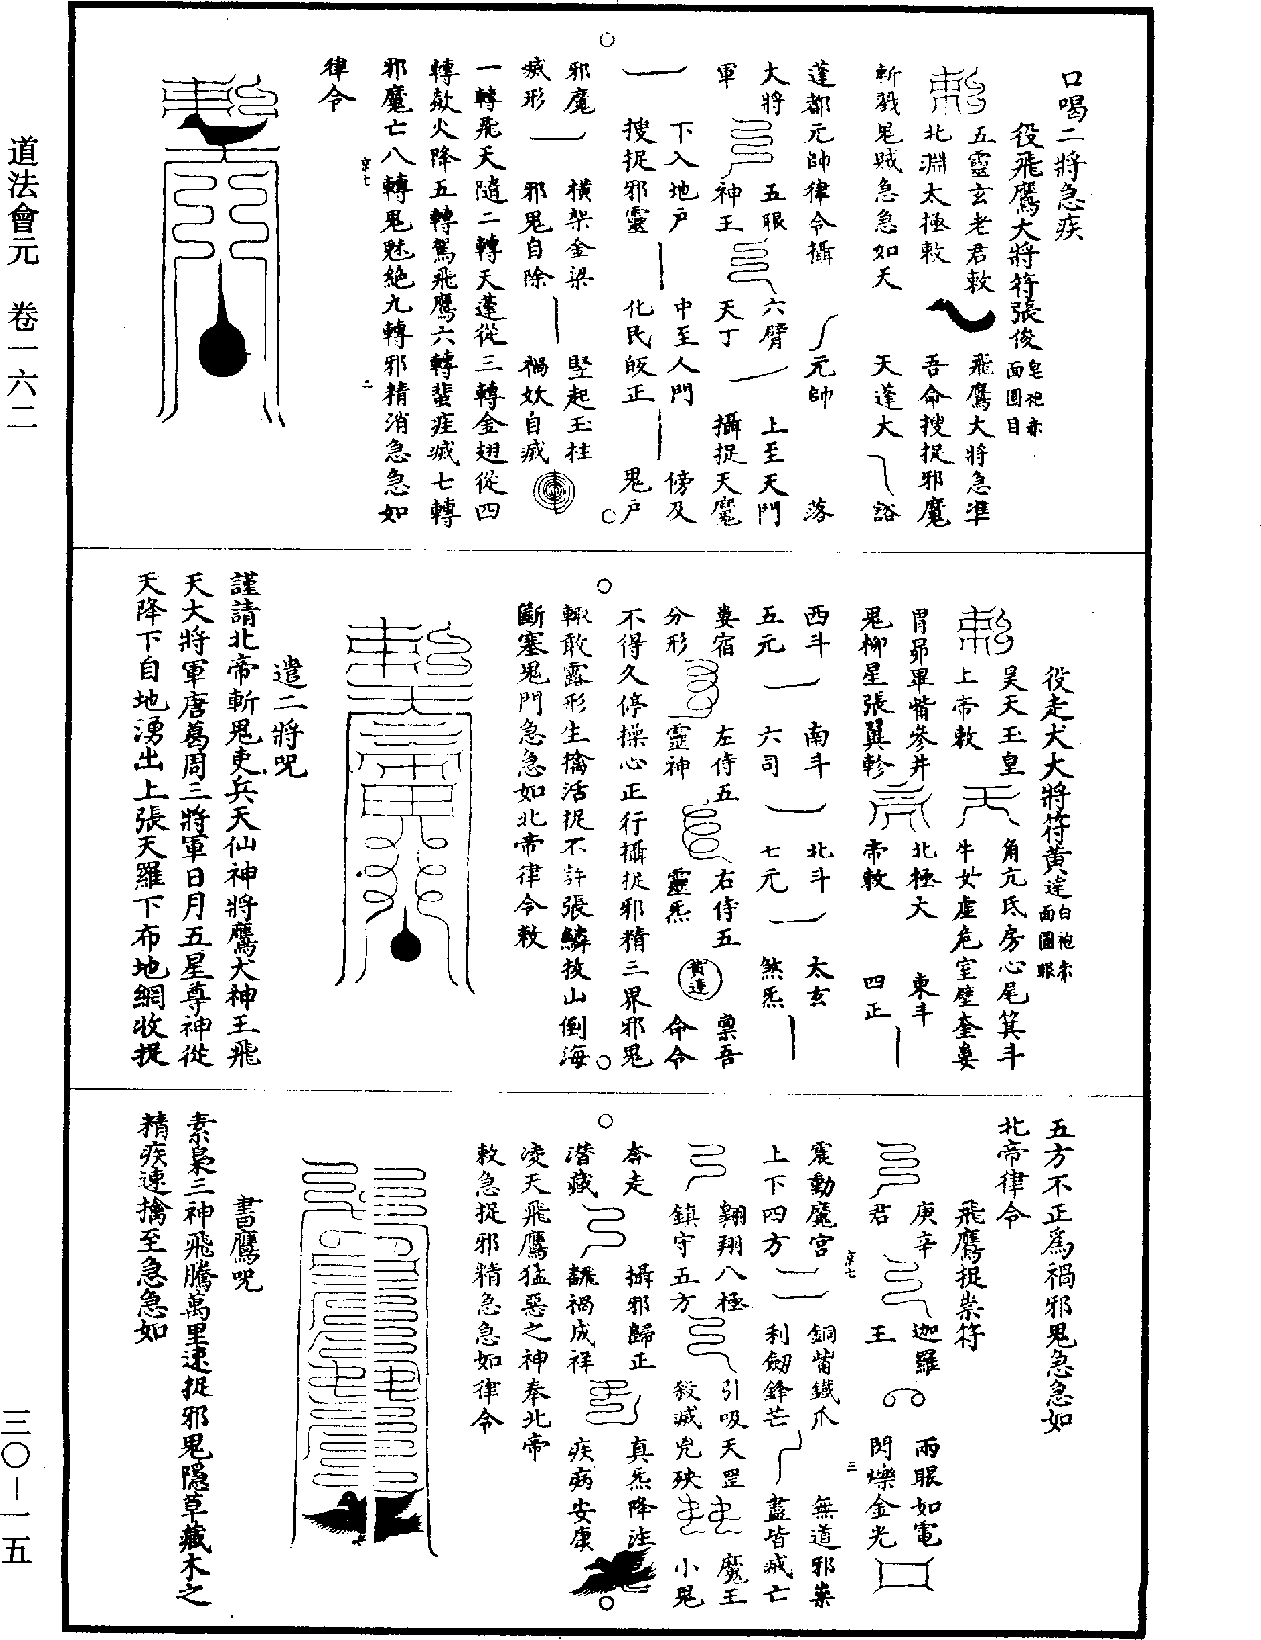 道法會元　卷一六二
三〇－一五
口喝二將急疾
役飛鷹大將符張俊 皂袍赤面圓目
五靈玄老君敕
飛鷹大將急準
北淵太極敕
吾命搜捉邪魔
斬戮鬼賊急急如天
天蓬大
谽
蓬都元帥律令攝
元帥
落
大將
五眼
六臂
上至天門
軍
神王
天丁
攝捉天魔
下入地戶
中至人門
傍及
搜捉邪靈
化民皈正
鬼戶
邪魔
橫架金梁
堅起玉柱
滅形
邪鬼自除
禍妖自滅
一轉飛天隨二轉天蓬從三轉金翅從四
轉欻火降五轉駕飛鷹六轉蜚疰滅七轉
邪魔亡八轉鬼魅絕九轉邪精消急急如
京七
二
律令
役走犬大將符黃 白袍赤面圓眼
昊天玉皇
角亢氐房心尾箕斗
上帝敕
牛女虛危室壁奎婁
胃昴畢觜參井
北極大
東斗
鬼柳星張翼軫
帝敕
四正
西斗
南斗
北斗
太玄
五元
六司
七元
煞炁
婁宿
左侍五
右侍五
稟吾
分形
靈神
靈炁
命令
不得久停操心正行攝捉邪精三界邪鬼
輒敢露形生擒活捉不許張鱗拔山倒海
斷塞鬼門急急如北帝律令敕
遣二將咒
謹請北帝斬鬼吏兵天仙神將鷹犬神王飛
天大將軍唐葛周三將軍日月五星尊神從
天降下自地湧出上張天羅下布地網收捉
五方不正為禍邪鬼急急如
北帝律令
飛鷹捉祟符
庚辛
迦羅
兩眼如電
君
王
閃爍金光
震動魔宮
銅觜鐵爪
無道邪祟
京七
三
上下四方
利劒鋒芒
盡皆滅亡
翱翔八極
引吸天罡
魔王
鎮守五方
殺滅兇殃
小鬼
奔走
攝邪歸正
真炁降注
潛藏
禍成祥
疾病安康
凌天飛鷹猛惡之神奉北帝
敕急捉邪精急急如律令
書鷹咒
素梟三神飛騰萬里速捉邪鬼隱草藏木之
精疾速擒至急急如